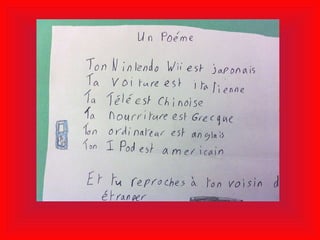 Un Poéme
Ton Nintendo Wii est japonais
Ta voiture est italienne
Ta Télé est Chinoise
Ta nourriture est Grecque
Ton ordinateur est anglais
Ton I Pod est americain
Et tu reproches à ton voisin d
étranger